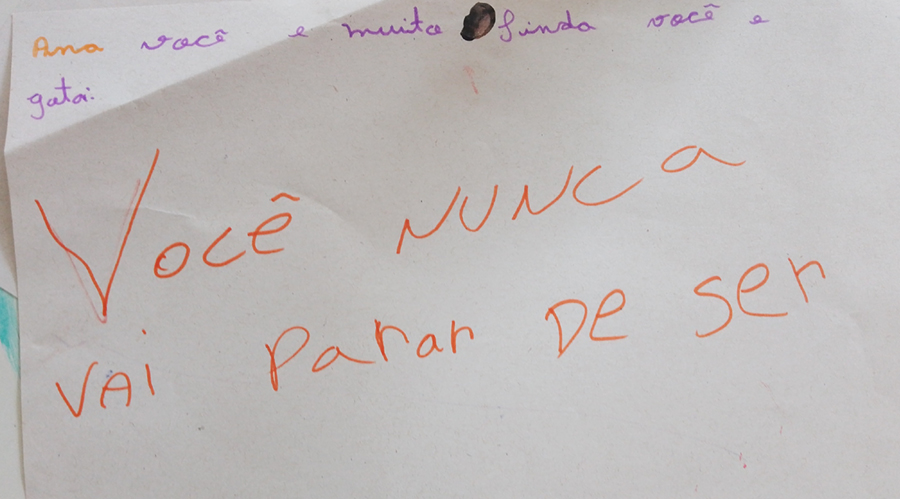 Ana você e muito linda você e
gata:
Você NUNCa
VAi Parar De Ser